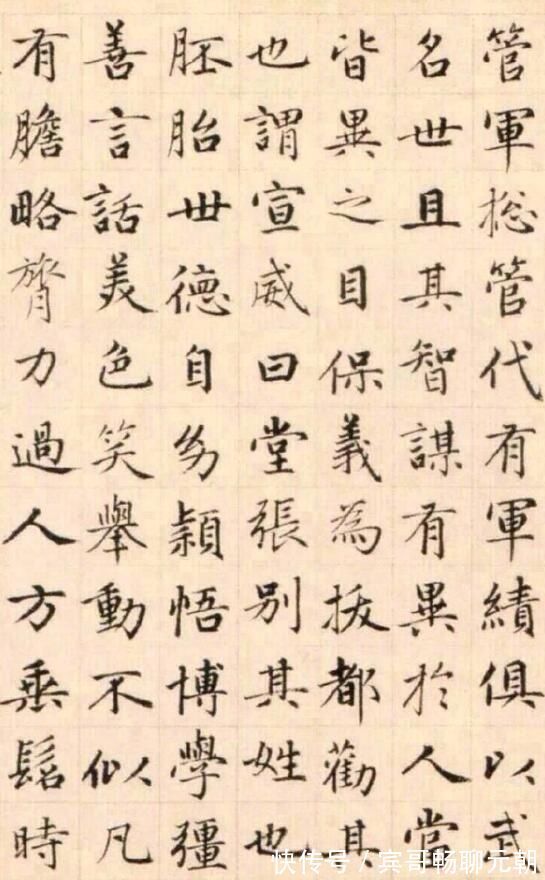 管軍捴管代有軍績俱以武
名世且其智謀有異於人當
皆異之目保義為拔都勸其
也謂宣威曰堂張別其姓也
胚胎世德自幼穎悟博學彊
善言話美色笑舉動不似凡
有膽略膂力過人方垂髫時
快传号/宾哥畅聊元朝